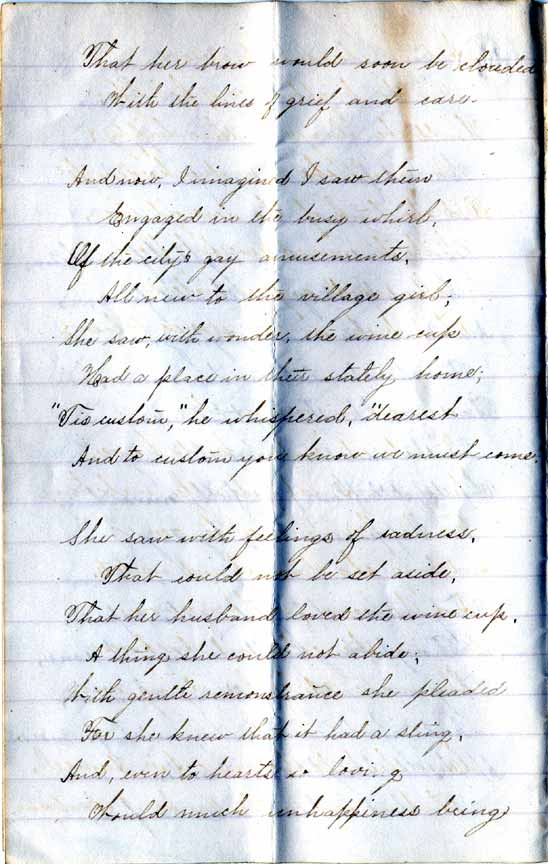 That her brow would soon be clouded
With the lines of grief and care.
And now, I imagined I saw them
Engaged in the busy whirl,
Of the city's gay amusements,
All new to the village girl;
She saw, with wonder, the wine cup
Had a place in their stately home;
"Tis custom," he whispered, "dearest
And to custom you know we must come.
She saw with feelings of sadness,
That could not be set aside,
That her husband loved the wine cup,
A thing she could not abide;
With gentle remonstrance she pleaded
For she knew that it had a sting,
And, even to hearts so loving
Would much unhappiness bring